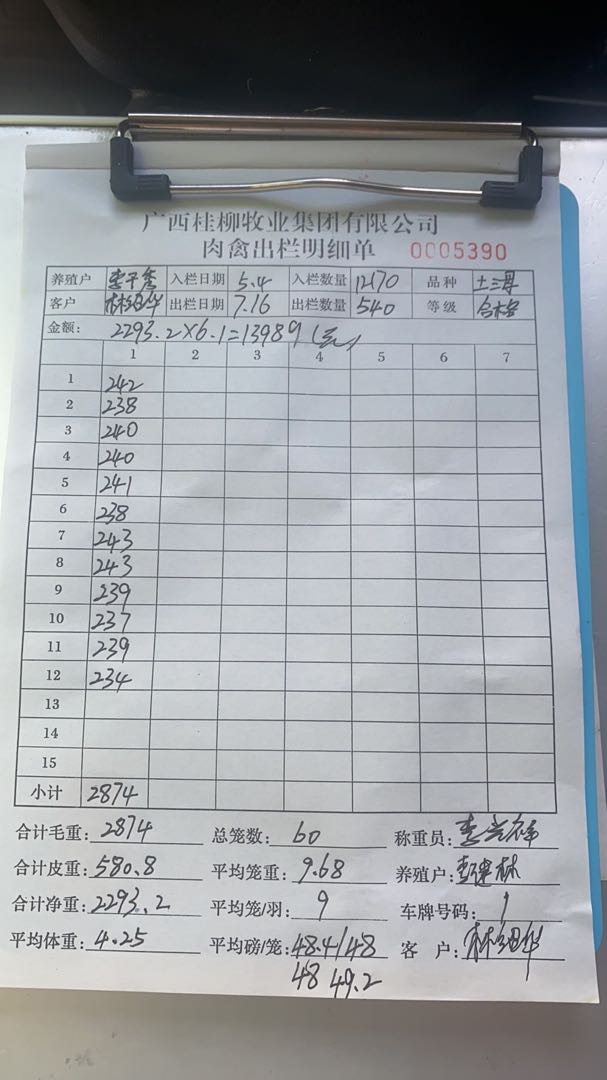 广西桂柳牧业集团有限公司
肉禽出栏明细单 0005390
养殖户 入栏日期 5.4 入栏数量 12170 品种 土三母
客户 林绍华 出栏日期 7.16 出栏数量 540 等级 合格
金额: 2293.2×6.1=13989(元)
1 2 3 4 5 6 7
1 242
2 238
3 240
4 240
5 241
6 238
7 243
8 243
9 239
10 237
11 239
12 234
13
14
15
小计 2874
合计毛重: 2874 总笼数: 60 称重员:
合计皮重: 580.8 平均笼重: 9.68 养殖户:
合计净重: 2293.2 平均笼/羽: 9 车牌号码: 1
平均体重: 4.25 平均磅/笼: 48.4/48 客 户: 林绍华
48 49.2